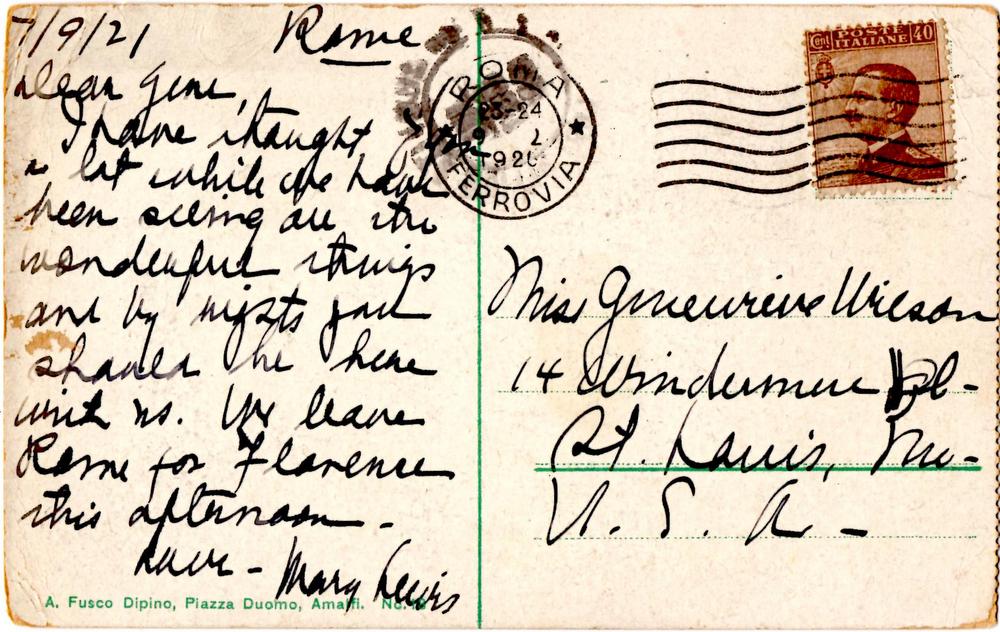 7/9/21 Rome
Dear Gene,
I have thought of you
a lot while we have
been seeing all the
wonderful things
and by rights you
should be here
with us. We leave
Rome for Florence
this afternoon -
Love - Mary Lewis
A. Fusco Dipino, Piazza Duomo, Amalfi. No.
ROMA
23-24
FERROVIA
Cent POSTE ITALIANE 40
Miss Genevieve Wilson
14 Windermere Pl-
St. Louis, Mo-
U. S. A -